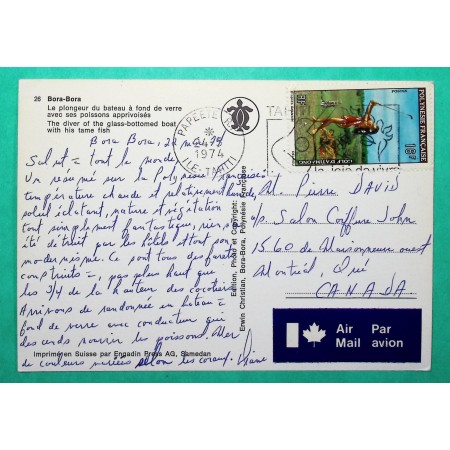 26 Bora-Bora
Le plongeur du bateau à fond de verre
avec ses poissons apprivoisés
The diver of the glass-bottomed boat
with his tame fish
PAPEETE
1974
ILE TAHITI
POLYNÉSIE FRANÇAISE
RF
GOLF D'ATIMAONO
Bora Bora, 22 mai
Salut à tout le monde,
Un résumé sur la Polynésie française:
température chaude et relativement humide,
soleil éclatant, nature & végétation
tout simplement fantastique, rien n'a
été détruit par les hôtels et tout son
modernisme. Ce sont tous des
construits pas plus haut que
les 3/4 de la hauteur des cocotiers
Arrivons de randonnée en bateau à
fond de verre avec conducteur qui
descends nourrir les poissons. Mer
de couleurs variées selon les coraux. Diane
Edition, Photo et Copyright:
Erwin Christian, Bora-Bora, Polynésie Française
Imprimé en Suisse par Engadin Press AG, Samedan
M. Pierre DAVID
a/s Salon Coiffure John
1560 de Maisonneuve ouest
Montréal, Qué
CANADA
Air Par
Mail avion